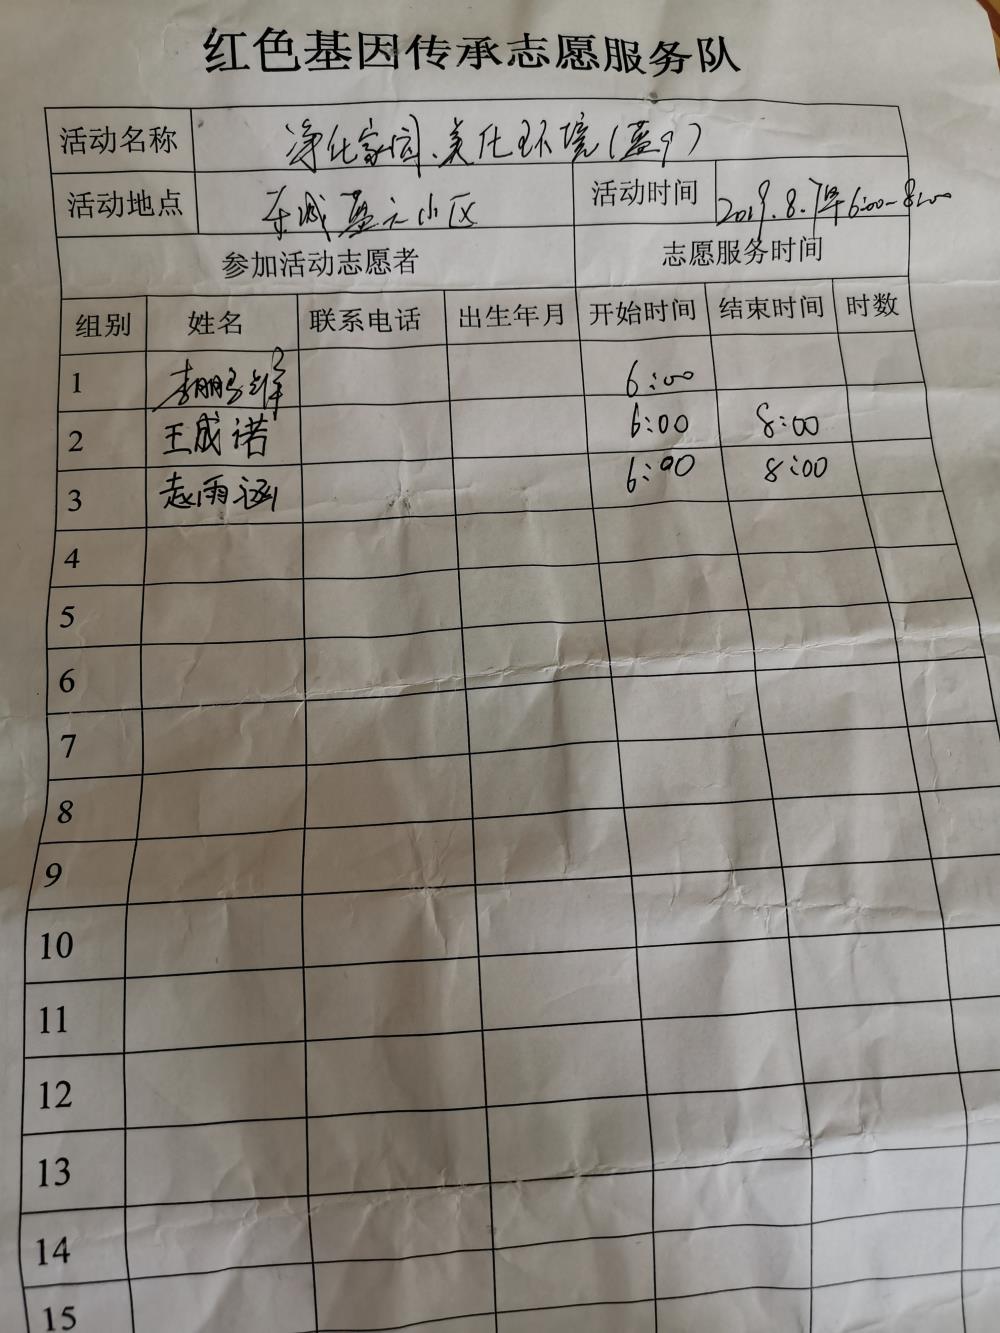 红色基因传承志愿服务队
活动名称 净化家园、美化环境
活动地点 东城盈元小区 活动时间 2019.8.7早6:00-8:00
参加活动志愿者 志愿服务时间
组别 姓名 联系电话 出生年月 开始时间 结束时间 时数
1 6:00
2 王成诺 6:00 8:00
3 赵雨涵 6:00 8:00
4
5
6
7
8
9
10
11
12
13
14
15